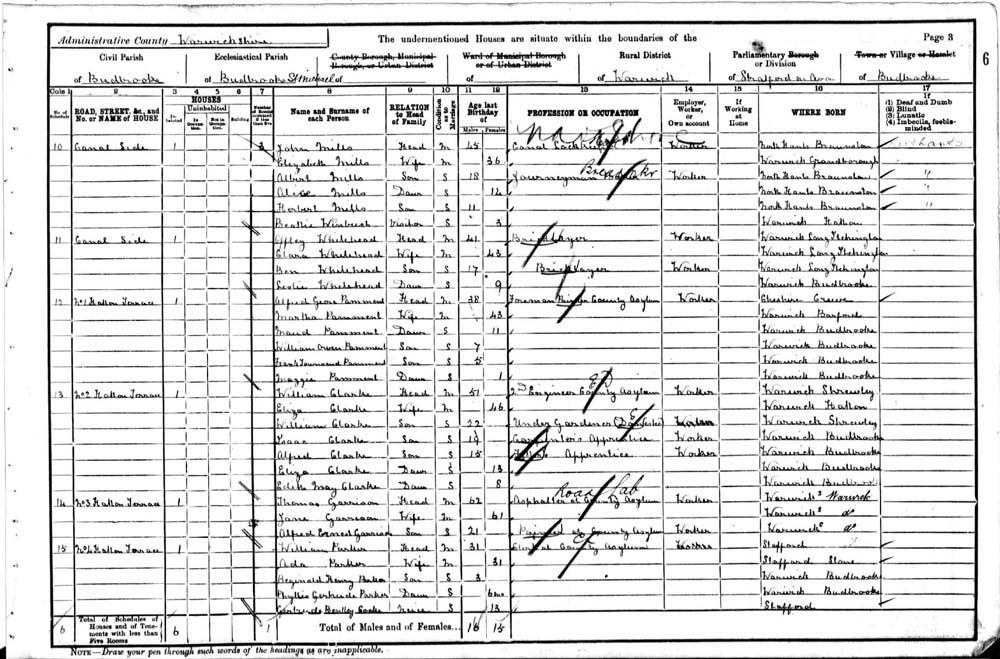 Administrative County Warwickshire
The undermentioned Houses are situate within the boundaries of the
Page 3
6
Civil Parish
of Budbrooke
Ecclesiastical Parish
of Budbrooke St Michael
County Borough, Municipal Borough, or Urban District
of
Ward of Municipal Borough or of Urban District
of
Rural District
of Warwick
Parliamentary Borough or Division
of Stratford on Avon
Town or Village or Hamlet
of Budbrooke
Cols 1 2 3 4 5 6 7 8 9 10 11 12 13 14 15 16 17
No. of Schedule
ROAD, STREET, &c., and No. or NAME of HOUSE
HOUSES
Inhabited
Uninhabited
In Occupation.
Not in Occupation.
Building
Name and Surname of each Person
RELATION to Head of Family
Condition as to Marriage
Age last Birthday of
Males
Females
PROFESSION OR OCCUPATION
Employer, Worker, or Own account
If Working at Home
WHERE BORN
If
(1) Deaf and Dumb
(2) Blind
(3) Lunatic
(4) Imbecile, feeble-minded
10 Canal Side 1 3 John Mills Head M 45 Canal Worker North Hants Braunston
Elizabeth Mills Wife M 36 Warwick Grandborough
Albert Mills Son S 18 Journeyman Worker North Hants Braunston "
Alice Mills Daur S 14 North Hants Braunston "
Herbert Mills Son S 11 North Hants Braunston "
Beattie Visitor S 3 Warwick Hatton
11 Canal Side 1 Whitehead Head M 41 Bricklayer Worker Warwick Long Itchington
Clara Whitehead Wife M 43 Warwick Long Itchington
Whitehead Son S 17 Bricklayer Worker Warwick Long Itchington
Leslie Whitehead Daur S 9 Warwick Budbrooke
12 No1 Hatton Terrace 1 Alfred Geore Pamment Head M 38 Foreman County Asylum Worker Cheshire Crewe
Martha Pamment Wife M 43 Warwick Barford
Maud Pamment Daur S 11 Warwick Budbrooke
William Owen Pamment Son S 7 Warwick Budbrooke
Frank Townsend Pamment Son S 5 Warwick Budbrooke
Maggie Pamment Daur S 1 Warwick Budbrooke
13 No2 Hatton Terrace 1 William Clarke Head M 51 2nd Engineer County Asylum Worker Warwick Shrewley
Eliza Clarke Wife M 46 Warwick Hatton
William Clarke Son S 22 Under Gardener (Domestic) Worker Warwick Shrewley
Isaac Clarke Son S 19 Carpenter's Apprentice Worker Warwick Budbrooke
Alfred Clarke Son S 15 Apprentice Worker Warwick Budbrooke
Eliza Clarke Daur S 13 Warwick Budbrooke
Edith May Clarke Daur S 8 Warwick Budbrooke
Road Lab
14 No3 Hatton Terrace 1 Thomas Garrison Head M 62 Asphalter at County Asylum Worker Warwicks Warwick
Jane Garrison Wife M 61 Warwicks do
Alfred Ernest Garrison Son S 21 Painter do County Asylum Worker Warwicks do
15 No4 Hatton Terrace 1 William Parker Head M 31 Clerk at County Asylum Worker Stafford
Ada Parker Wife M 31 Stafford Stone
Reginald Henry Parker Son S 3 Warwick Budbrooke
Phyllis Gertrude Parker Daur S 6mo Warwick Budbrooke
Gertrude Bentley Cooke Neice S 13 Stafford
6 Total of Schedules of Houses and of Tenements with less than Five Rooms 6 1 Total of Males and of Females... 16 15
NOTE—Draw your pen through such words of the headings as are inapplicable.